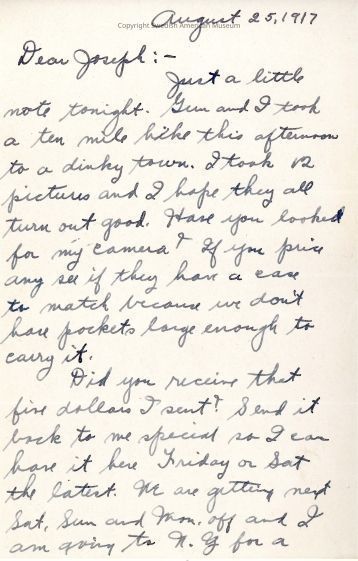 August 25, 1917
Copyright Swedish American Museum
Dear Joseph:-
Just a little
note tonight. Gun and I took
a ten mile hike this afternoon
to a dinky town. I took 12
pictures and I hope they all
turn out good. Have you looked
for my camera? If you price
any see if they have a case
to match because we don't
have pockets large enough to
carry it.
Did you receive that
five dollars I sent? Send it
back to me special so I can
have it here Friday or Sat
the latest. We are getting next
Sat, Sun and Mon. off and I
am going to N. Y. for a